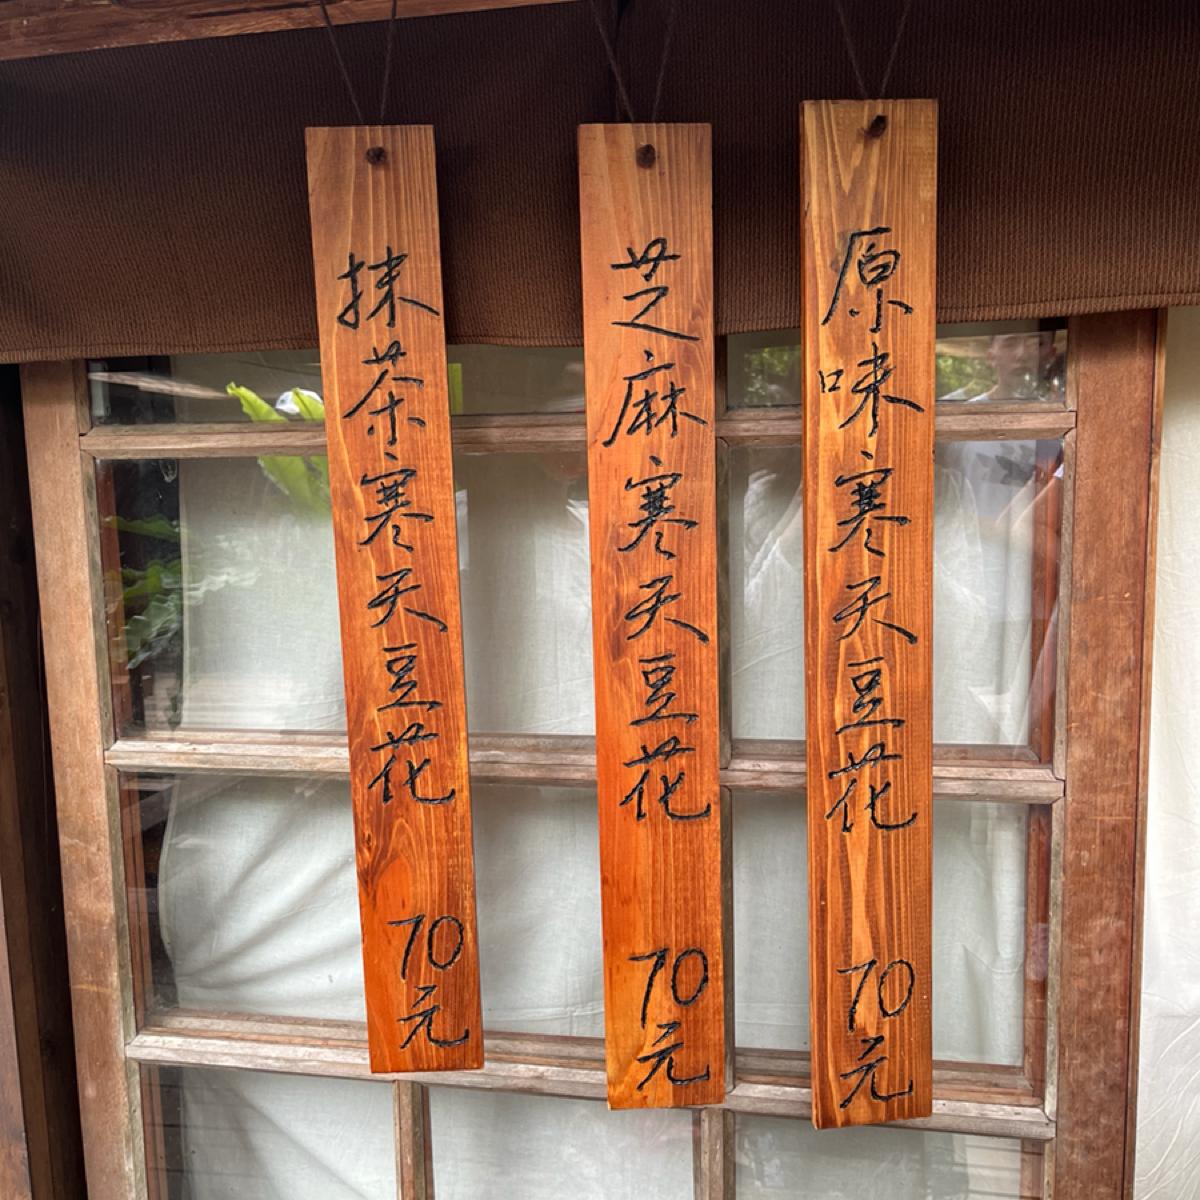 原味寒天豆花 70元
芝麻寒天豆花 70元
抹茶寒天豆花 70元